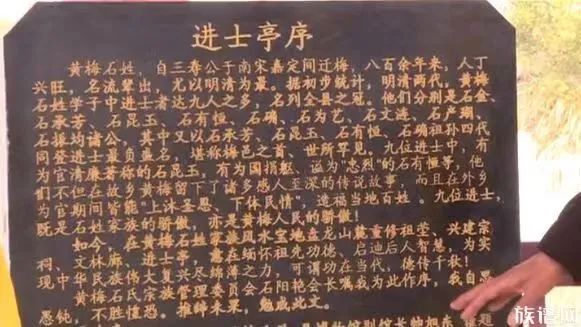 进士亭序
黄梅石姓，自三寿公于南宋嘉定间迁梅，八百余年来，人丁
兴旺，名流辈出，尤以明清为最。据初步统计，明清两代，黄梅
石姓学子中进士者达九人之多，名列全县之冠。他们分别是石金、
石承芳、石昆玉、石有恒、石确、石为艺、石文涟、石产瑚、
石振均诸公，其中又以石承芳、石昆玉、石有恒、石确祖孙四代
同登进士最负盛名，堪称梅邑之首、世所罕见。九位进士中，有
为官清廉著称的石昆玉，有为国捐躯、谥为“忠烈”的石有恒等，他
们不但在故乡黄梅留下了诸多感人至深的传说故事，而且在外乡
为官期间皆能“上沐圣恩，下体民情”，造福当地百姓。九位进士，
既是石姓家族的骄傲，亦是黄梅人民的骄傲！
如今，在黄梅石姓家族风水宝地点龙山麓重修祖堂、兴建宗
祠、文林廊、进士亭，意在缅怀祖先功德、启迪后人智慧，为实
现中华民族伟大复兴尽绵薄之力，可谓功在当代，德传千秋！
黄梅石氏宗族管理委员会石阳艳会长嘱我为此作序，我自愚
愚钝，不胜惶恐。推辞未果，勉成此文。
族谱网